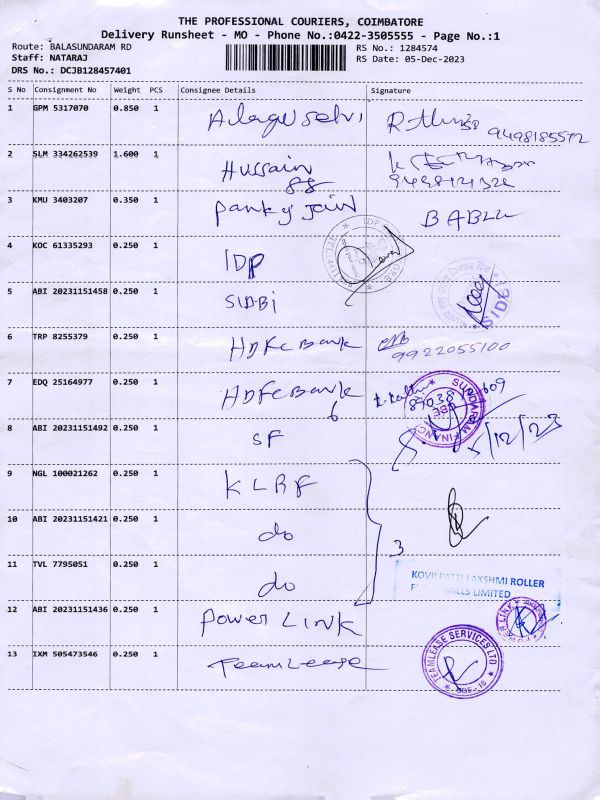 THE PROFESSIONAL COURIERS, COIMBATORE
Delivery Runsheet - MO - Phone No.:0422-3505555 - Page No.:1
Route: BALASUNDARAM RD RS No.: 1284574
Staff: NATARAJ RS Date: 05-Dec-2023
DRS No.: DCJB128457401
S No Consignment No Weight PCS Consignee Details Signature
1 GPM 5317070 0.850 1 Alagu selvi 9498185572
2 SLM 334262539 1.600 1 Hussain
88
3 KMU 3403207 0.350 1 Panky Jain BABLU
4 KOC 61335293 0.250 1 IDP
5 ABI 20231151458 0.250 1 SIDBi SIDB
6 TRP 8255379 0.250 1 HDFC Bank 9922055100
7 EDQ 25164977 0.250 1 HDFC Bank
6
SUNDARAM FINANCE
CBE
8 ABI 20231151492 0.250 1 SF 5/12/23
9 NGL 100021262 0.250 1 KLRF
10 ABI 20231151421 0.250 1 do
3
11 TVL 7795051 0.250 1 do
KOVILPATTI LAKSHMI ROLLER
FLOUR MILLS LIMITED
12 ABI 20231151436 0.250 1 Power Link POWER LINK
13 IXM 505473546 0.250 1 TeamLease
TEAMLEASE SERVICES LTD
CBE-18